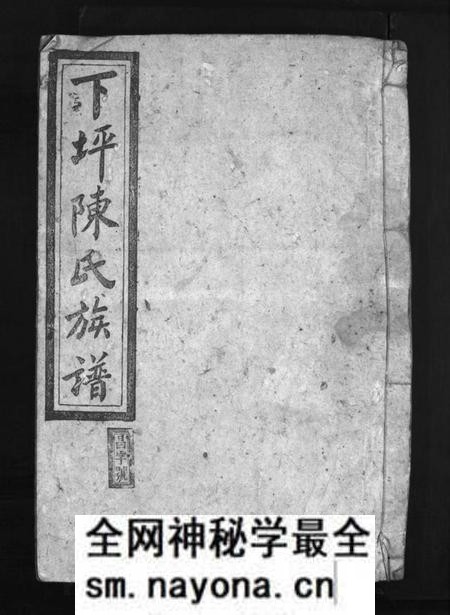 下坪陳氏族譜
字號
全网神秘学最全
sm.nayona.cn